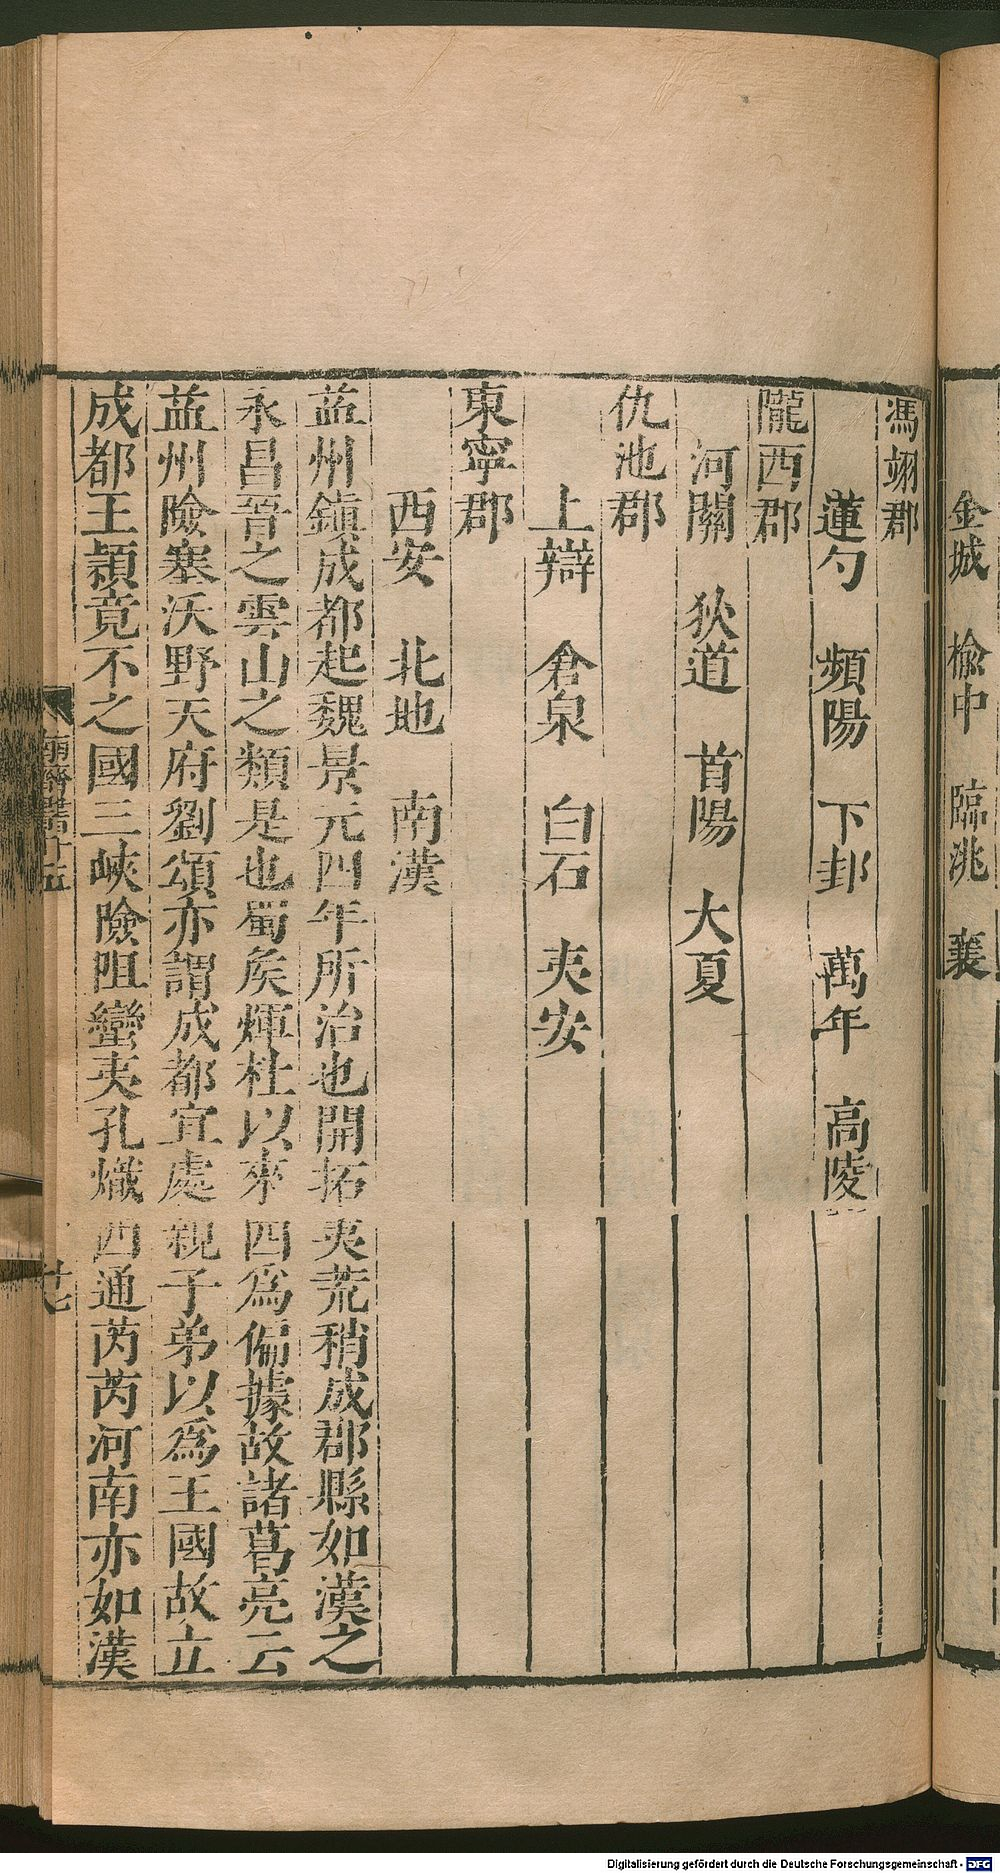 金城　榆中　臨洮　襄
馮翊郡
蓮勺　頻陽　下邽　萬年　高陵
隴西郡
河關　狄道　首陽　大夏
仇池郡
上辯　倉泉　白石　夷安
東寧郡
西安　北地　南漢
益州鎮成都起魏景元四年所治也開拓夷荒稍成郡縣如漢之
永昌晉之雲山之類是也蜀矦煇杜以來四爲偏據故諸葛亮云
益州險塞沃野天府劉頌亦謂成都宜處親子弟以爲王國故立
成都王穎竟不之國三峽險阻蠻夷孔熾西通芮芮河南亦如漢
南齊書十五
廿七
Digitalisierung gefördert durch die Deutsche Forschungsgemeinschaft - DFG